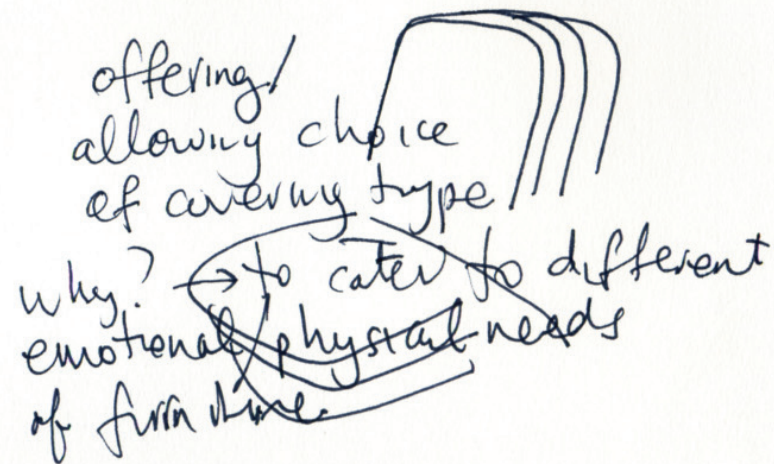 offering/
allowing choice
of covering type
why? → to cater to different
emotional/physical needs
of furniture.